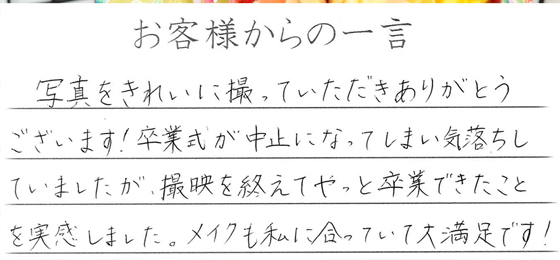 お客様からの一言
写真をきれいに撮っていただきありがとう
ございます！卒業式が中止になってしまい気落ちし
ていましたが、撮映を終えてやっと卒業できたこと
を実感しました。メイクも私に合っていて大満足です！